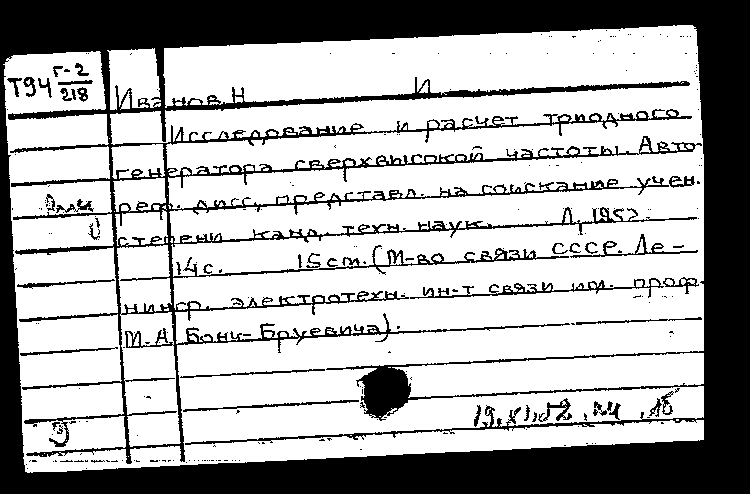 Т94 Г-2
218
Иванов, Н И
Исследование и расчет триодного
генератора сверхвысокой частоты. Авто-
реф. дисс., представл. на соискание учен.
степени канд. техн. наук. Л, 1952
14 с. 15 см. (М-во связи СССР. Ле-
нингр. электротехн. ин-т связи им. проф.
М. А. Бонч-Бруевича).
19.XI.52